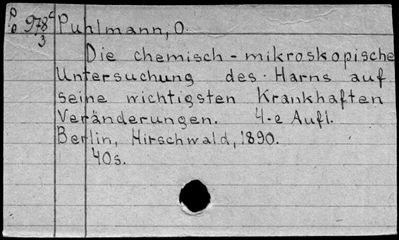 P/o 978c/3 Puhlmann, O.
Die chemisch-mikroskopische
Untersuchung des Harns auf
seine wichtigsten Krankhaften
Veränderungen. 4-e Aufl.
Berlin, Hirschwald, 1890.
40s.